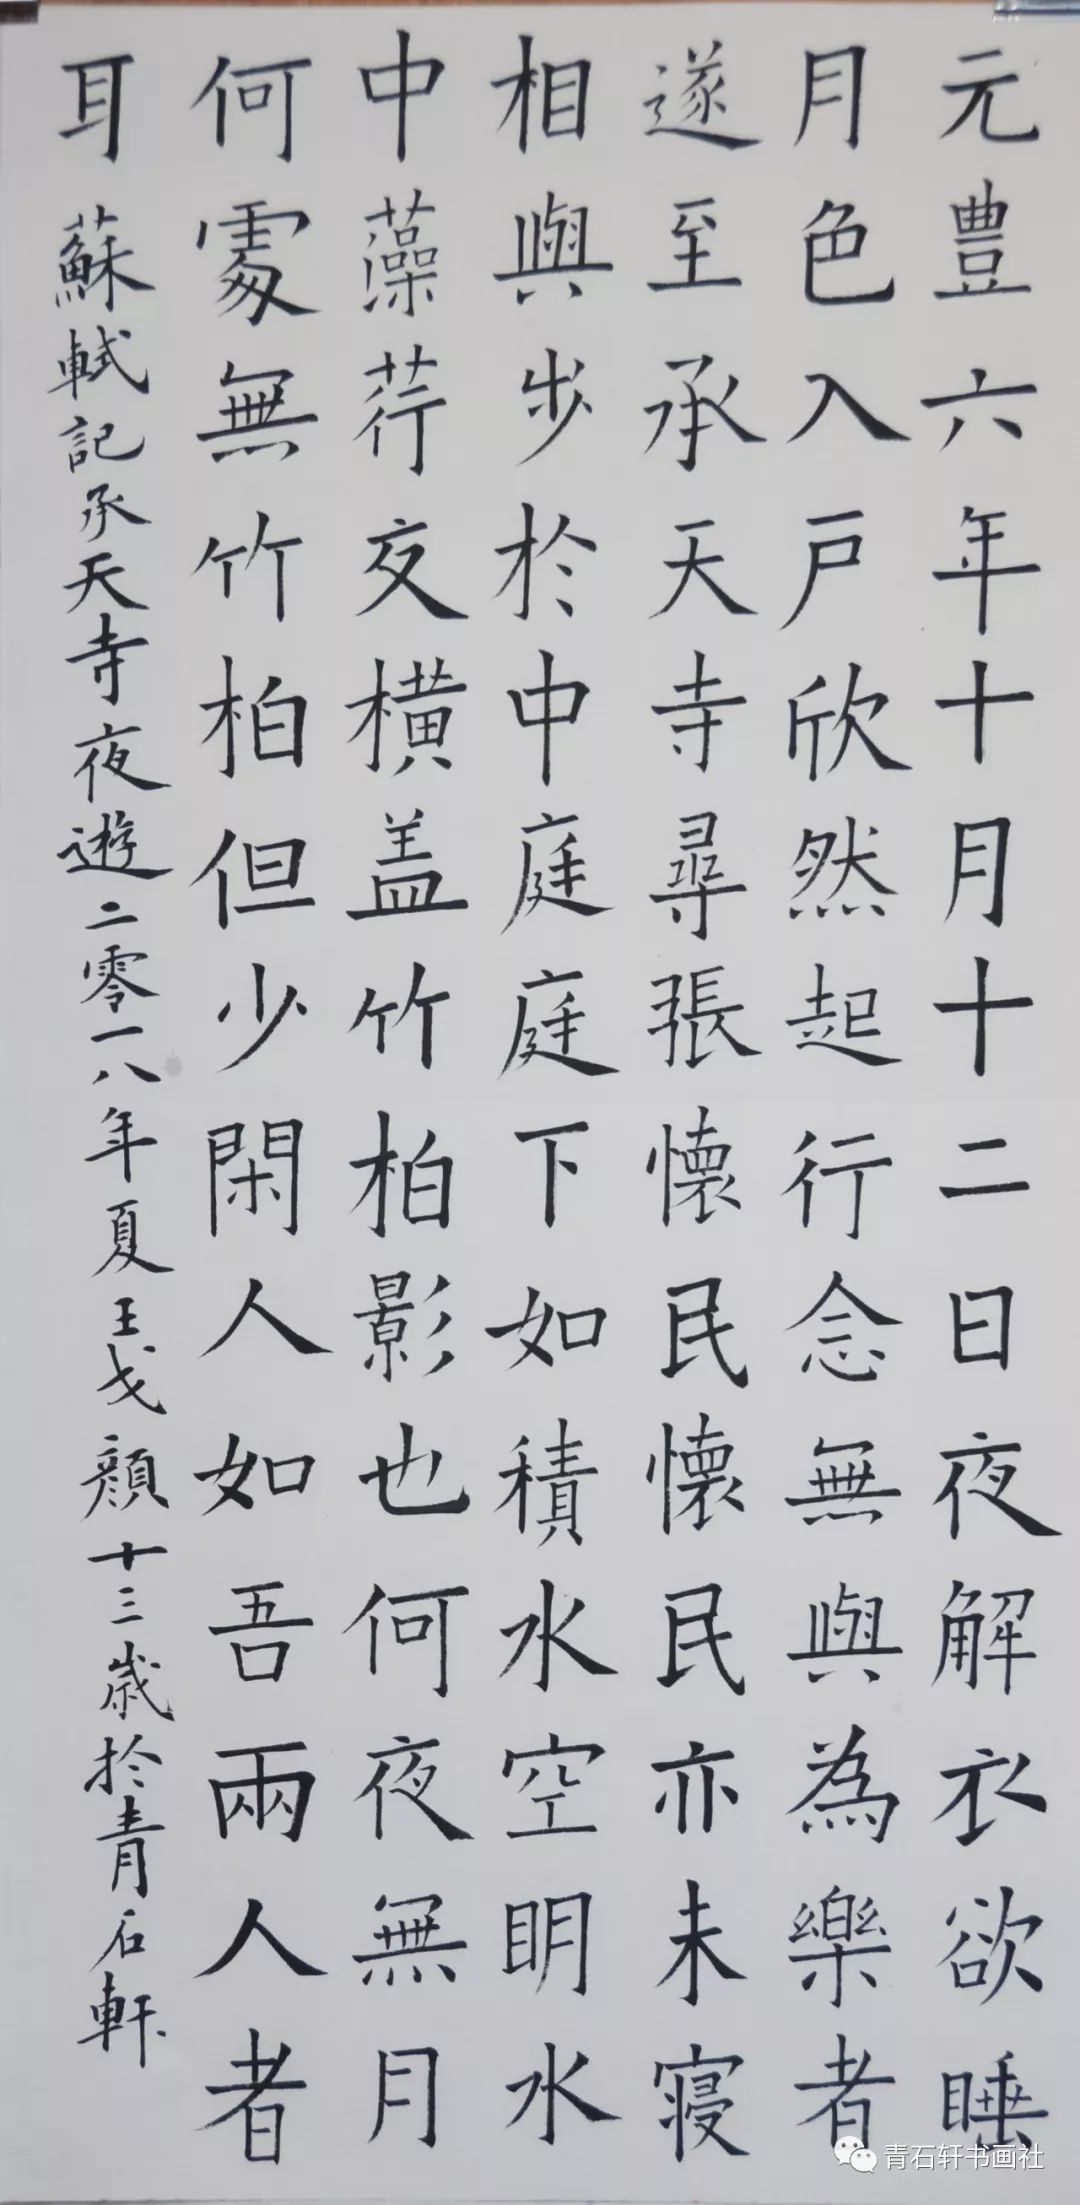 元豊六年十月十二日夜解衣欲睡
月色入戸欣然起行念無與為樂者
遂至承天寺尋張懷民懷民亦未寝
相與步於中庭庭下如積水空明水
中藻荇交横盖竹柏影也何夜無月
何處無竹柏但少閑人如吾兩人者
耳 蘇軾記承天寺夜遊 二零一八年夏 王戈顔十三歲於青石軒
青石轩书画社